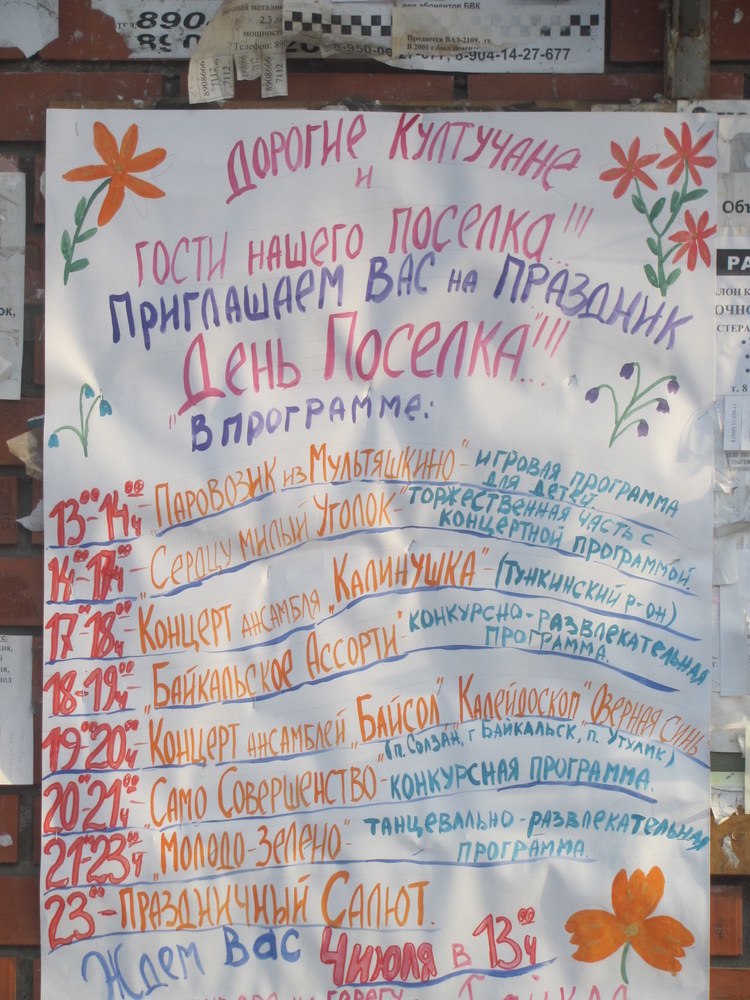 8904
2001
8-950-09
27-077, 8-904-14-27-677
Продается ВАЗ-2109, гв.
8908666
7112
8908666
7112
ДОРОГИЕ КУЛТУЧАНЕ
И
ГОСТИ НАШЕГО ПОСЕЛКА...!!!
ПРИГЛАШАЕМ ВАС НА ПРАЗДНИК
ДЕНЬ ПОСЕЛКА"...!!!
"В ПРОГРАММЕ:
13⁰⁰-14⁰⁰ч - "ПАРОВОЗИК ИЗ МУЛЬТЯШКИНО" - ИГРОВАЯ ПРОГРАММА
ДЛЯ ДЕТЕЙ.
14⁰⁰-17⁰⁰ч - "СЕРДЦУ МИЛЫЙ УГОЛОК" - ТОРЖЕСТВЕННАЯ ЧАСТЬ С
КОНЦЕРТНОЙ ПРОГРАММОЙ.
17⁰⁰-18⁰⁰ч - КОНЦЕРТ АНСАМБЛЯ "КАЛИНУШКА" - (ТУНКИНСКИЙ Р-ОН)
18-19⁰⁰ч - "БАЙКАЛЬСКОЕ АССОРТИ" КОНКУРСНО-РАЗВЛЕКАТЕЛЬНАЯ
ПРОГРАММА.
19⁰⁰20⁰⁰ч - КОНЦЕРТ АНСАМБЛЕЙ "БАЙСОЛ" "КАЛЕЙДОСКОП" "ОЗЕРНАЯ СИНЬ"
(П. СОЛЗАН, Г БАЙКАЛЬСК, П. УТУЛИК)
20⁰⁰-21⁰⁰ч - "САМО СОВЕРШЕНСТВО" - КОНКУРСНАЯ ПРОГРАММА.
21⁰⁰-23⁰⁰ч "МОЛОДО-ЗЕЛЕНО" - ТАНЦЕВАЛЬНО-РАЗВЛЕКАТЕЛЬНАЯ
ПРОГРАММА.
23⁰⁰ - ПРАЗДНИЧНЫЙ САЛЮТ.
ЖДЕМ ВАС 4 ИЮЛЯ В 13⁰⁰ч